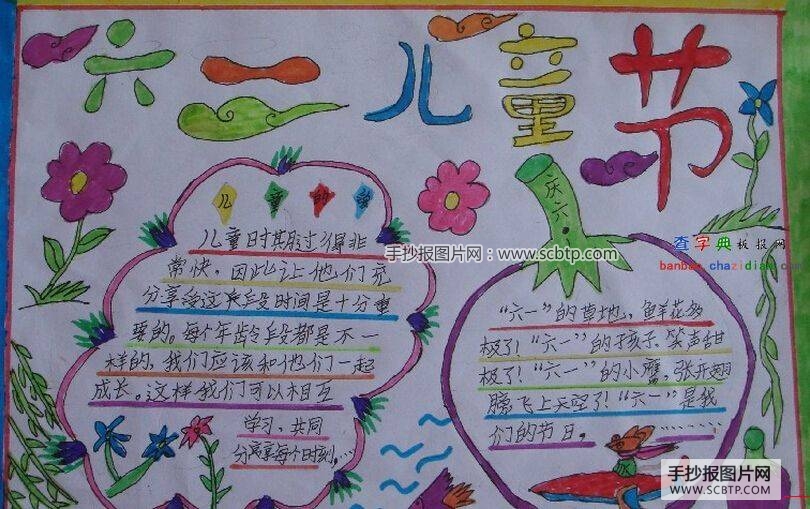 六一儿童节
儿童的梦
儿童时期过得非
常快，因此让他们充
分享受这段时间是十分重
要的。每个年龄段都是不一
样的，我们应该和他们一起
成长。这样我们可以相互
学习，共同
分享每个时刻。…
庆六一
"六一"的草地，鲜花多
极了！"六一"的孩子，笑声甜
极了！"六一"的小鹰，张开翅
膀飞上天空了！"六一"是我
们的节日。………
手抄报图片网：www.scbtp.com
查字典板报网
banbao.chazidian.com
手抄报图片网
WWW.SCBTP.COM